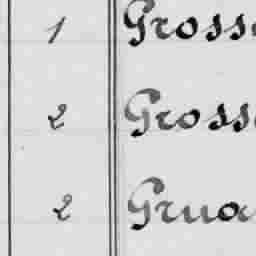 1 Gross
2 Gross
2 Grua